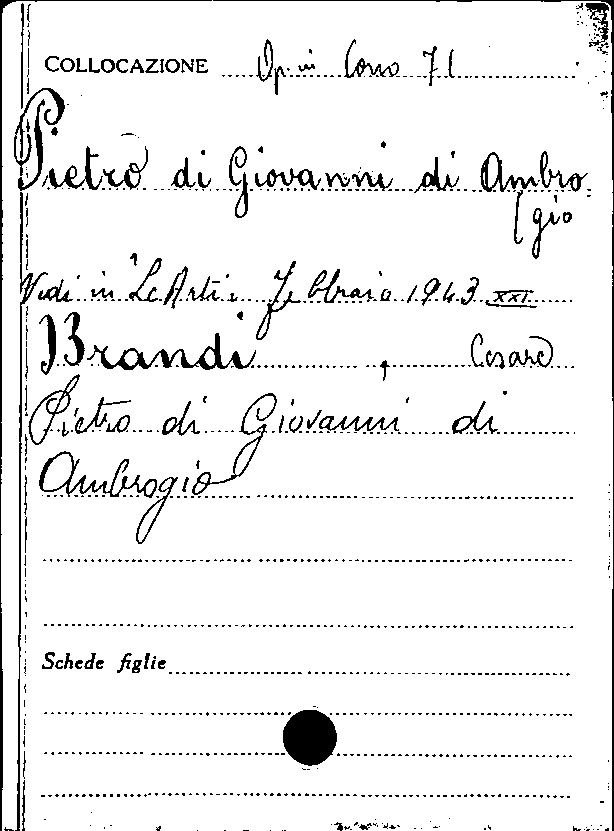 COLLOCAZIONE Op. in Corso 71
Pietro di Giovanni di Ambro
gio
Vedi in "Le Arti" Febbraio 1943 XXI
Brandi, Cesare
Pietro di Giovanni di
Ambrogio
Schede figlie